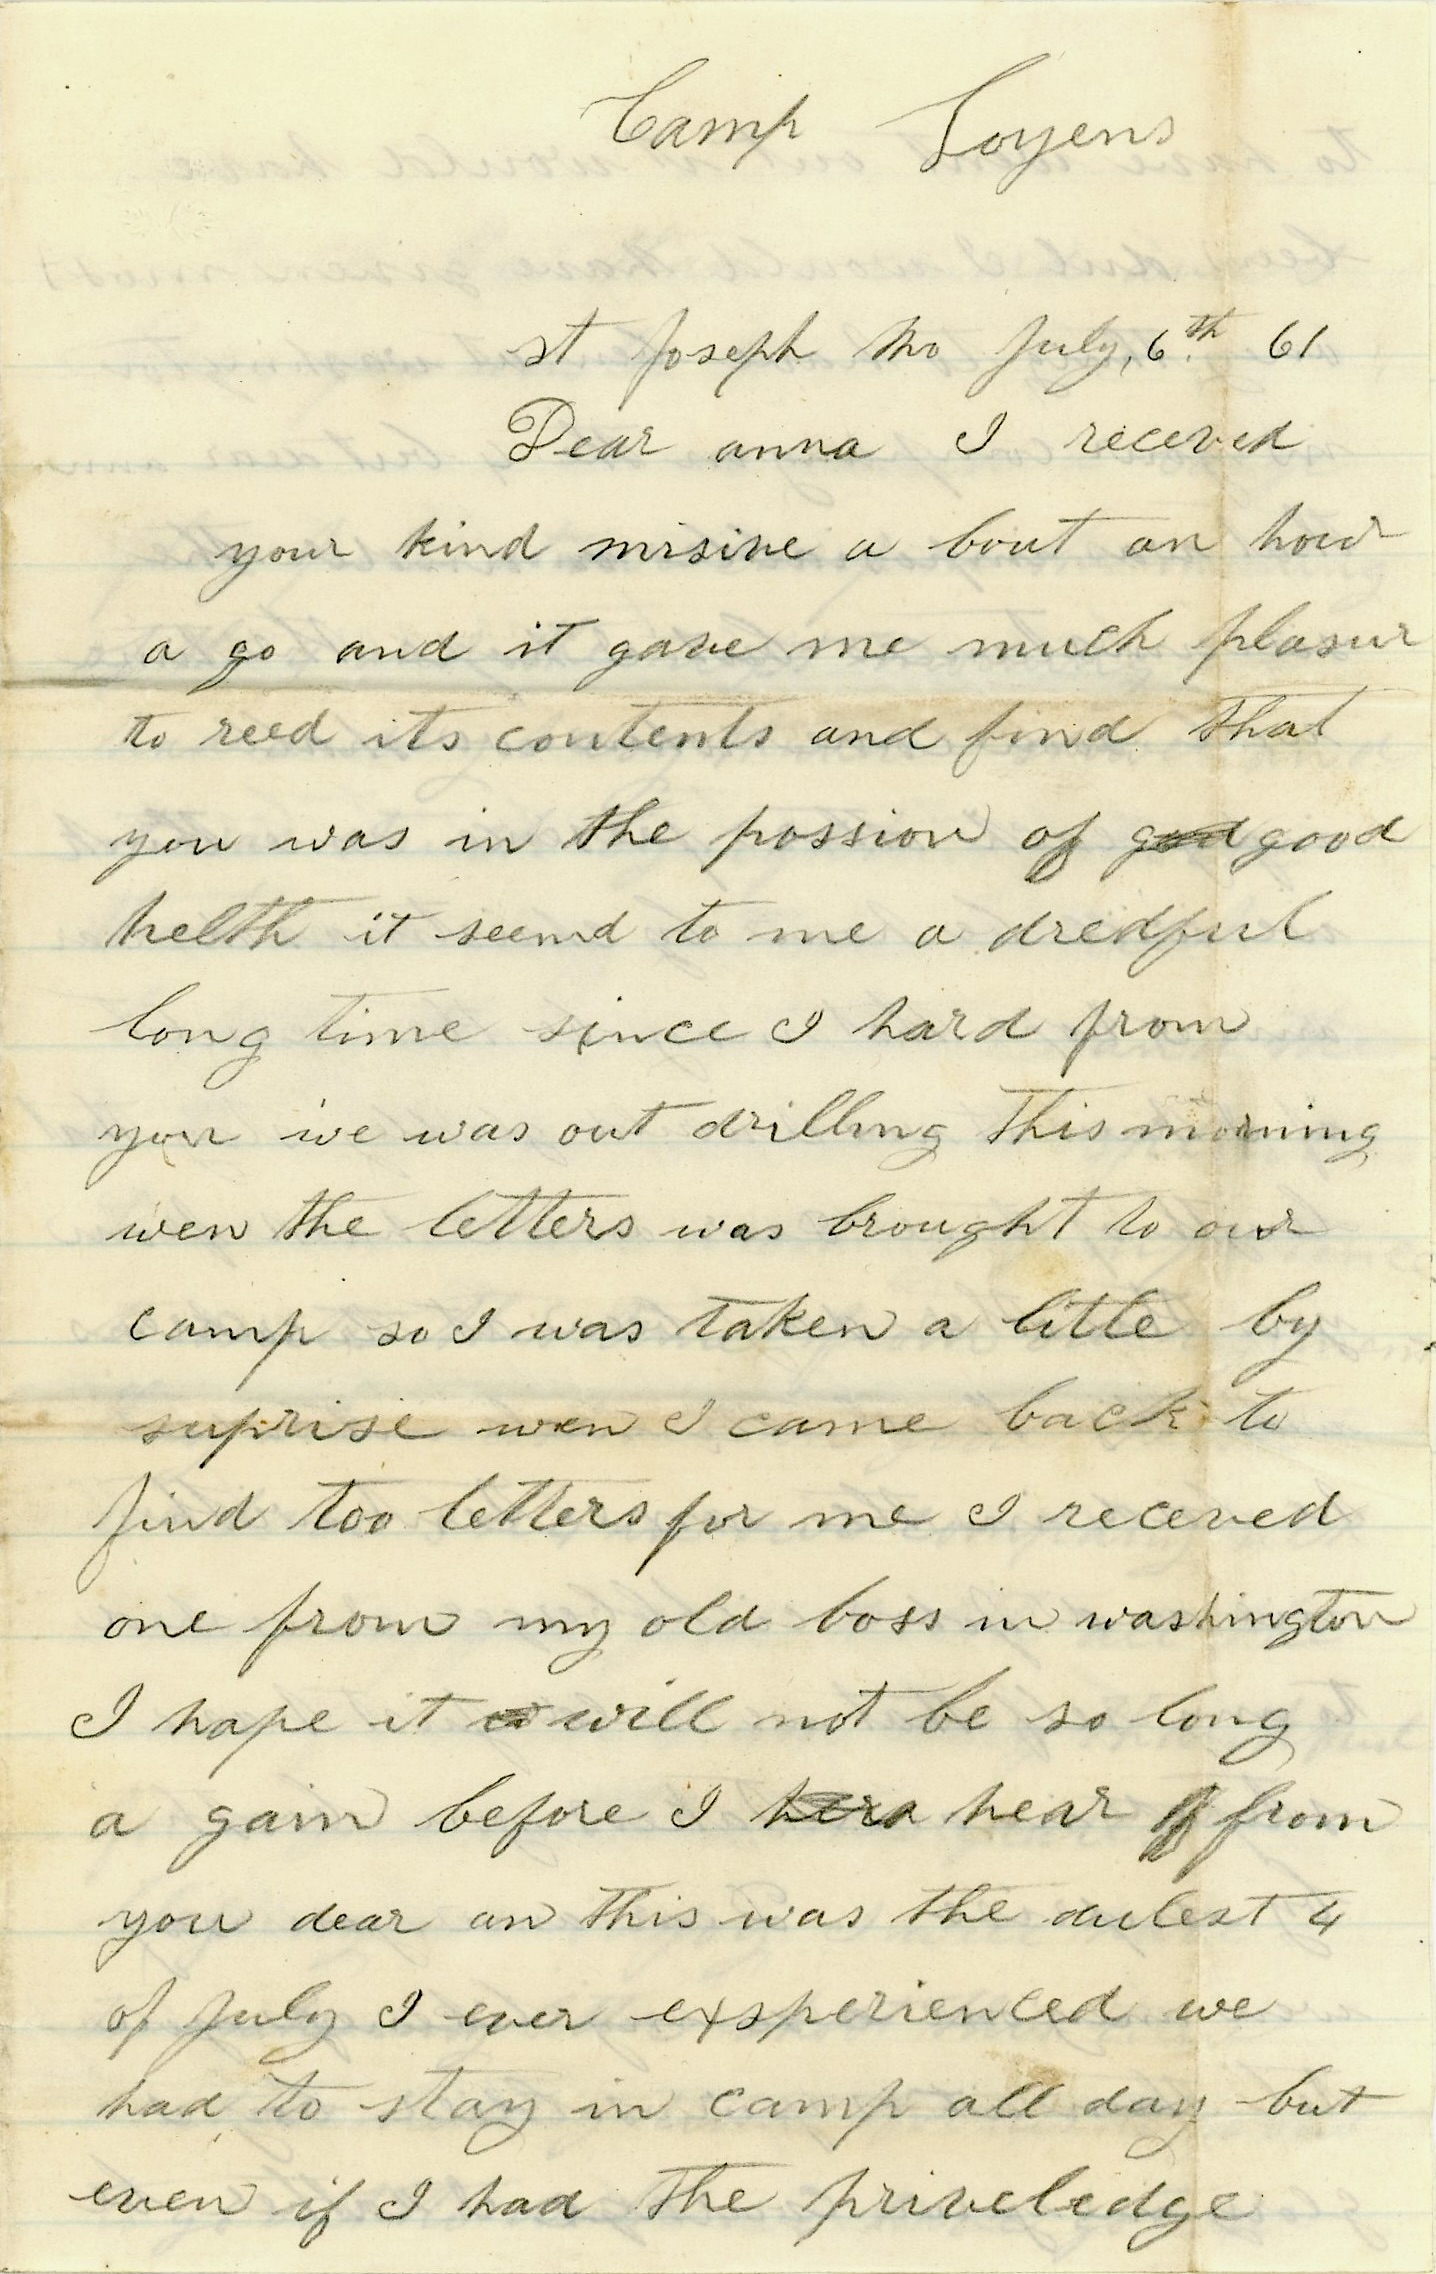 Camp Loyens
st Joseph Mo July, 6th 61
Dear anna I receved
your kind misive a bout an hour
a go and it gave me much plasur
to reed its contents and find that
you was in the possion of good good
helth it seemd to me a dredful
long time since I hard from
you we was out drilling this morning
wen the letters was brought to our
camp so I was taken a little by
suprise wen I came back to
find too letters for me I receved
one from my old boss in washington
I hape it will not be so long
a gain before I hear from
you dear an this was the dulest 4
of July I ever exsperienced we
had to stay in camp all day but
even if I had the priveledge